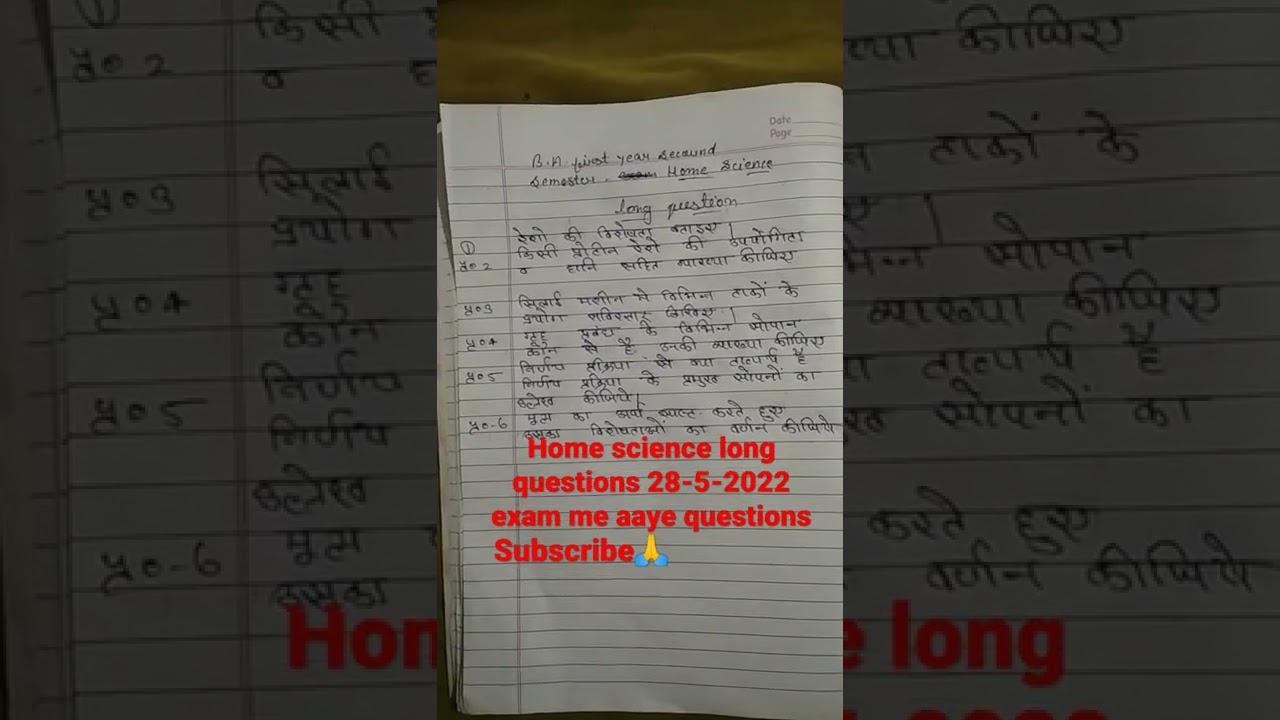 Date
Page
B.A. first year Secound
Semester. Home Science
long question
① रेशो की विशेषता बताइए |
प्र०2 किसी प्रोटीन रेशे की उपयोगिता
व हानि सहित व्याख्या कीजिए
प्र०3 सिलाई मशीन मे विभिन्न ताकों के
प्रयोग सविस्तार लिखिए |
प्र०4 गृह प्रबंध के विभिन्न सोपान
कौन से है उनकी व्याख्या कीजिए
प्र०5 निर्णय प्रक्रिया से क्या तात्पर्य है
निर्णय प्रक्रिया के प्रमुख सोपनों का
उल्लेख कीजिये |
प्र०-6 मूल्य का अर्थ स्पष्ट करते हुए
उसका विशेषताओं का वर्णन कीजिये
Home science long
questions 28-5-2022
exam me aaye questions
Subscribe🙏